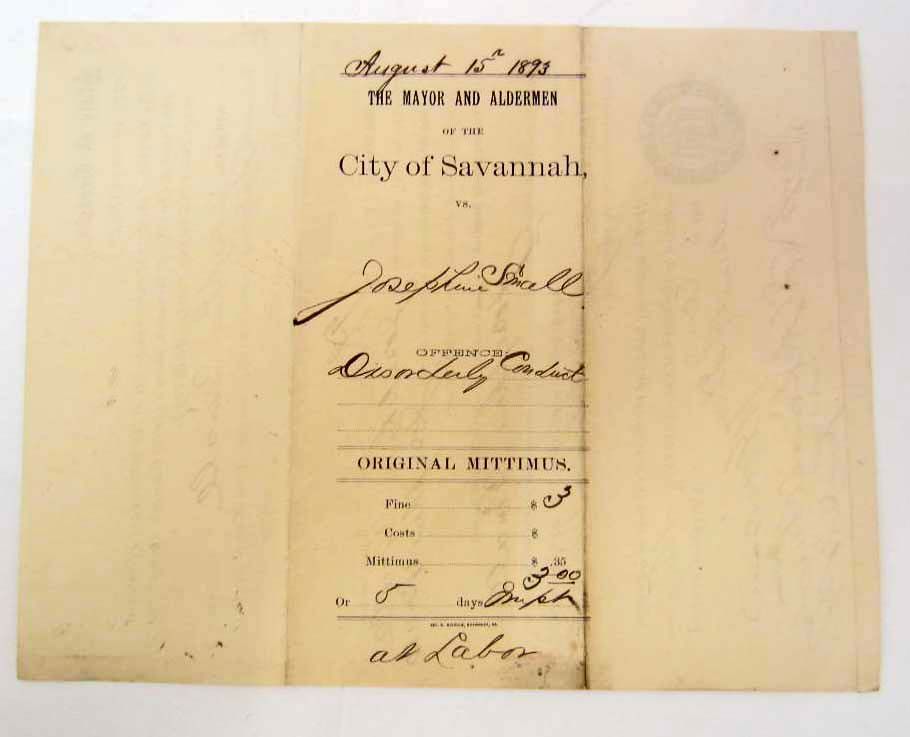 August 15th 1893
THE MAYOR AND ALDERMEN
OF THE
City of Savannah,
vs.
Josephine Small
OFFENCE:
Disorderly Conduct
ORIGINAL MITTIMUS.
Fine $ 3
Costs $
Mittimus $ .35
3.00
Or 5 days
at Labor